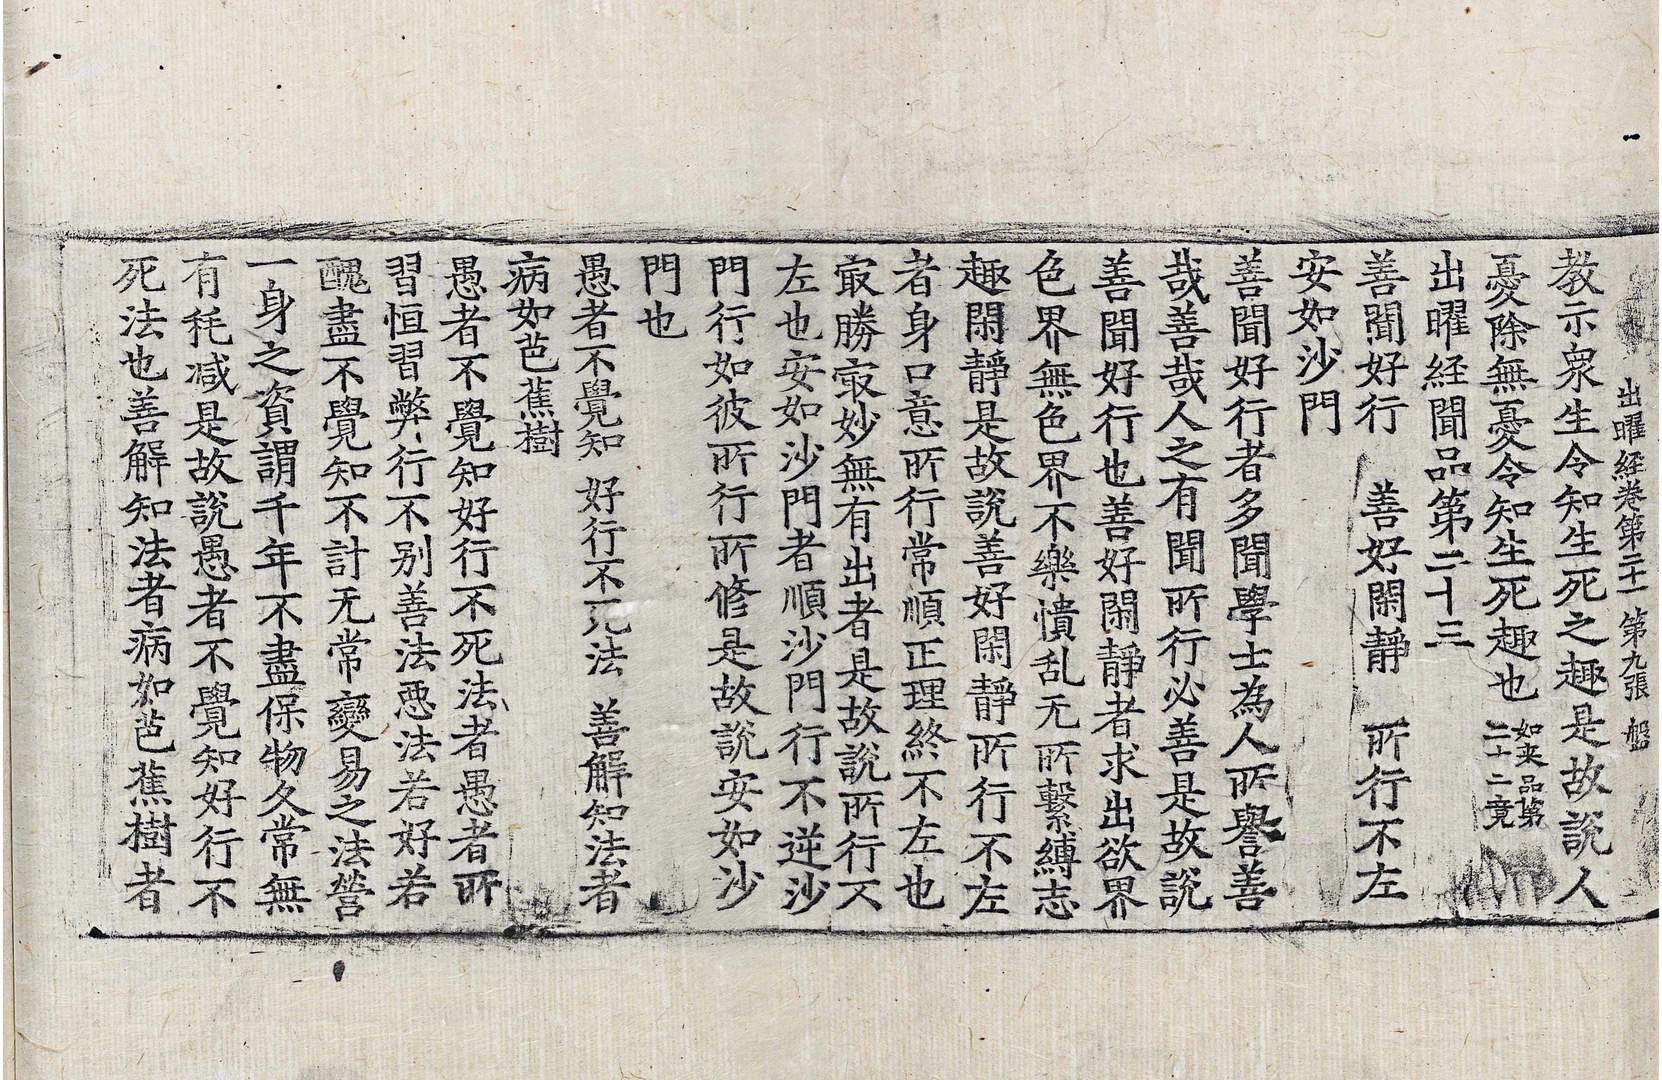 出曜経卷第二十一　第九張　盤
教示衆生令知生死之趣是故說人
憂除無憂令知生死趣也　如来品第二十二竟
出曜経聞品第二十三
善聞好行　善好閑靜　所行不左
安如沙門
善聞好行者多聞學士為人所譽善
哉善哉人之有聞所行必善是故說
善聞好行也善好閑靜者求出欲界
色界無色界不樂憒乱无所繫縛志
趣閑靜是故說善好閑靜所行不左
者身口意所行常順正理終不左也
㝡勝㝡妙無有出者是故說所行不
左也安如沙門者順沙門行不逆沙
門行如彼所行所修是故說安如沙
門也
愚者不覺知　好行不死法　善解知法者
病如芭蕉樹
愚者不覺知好行不死法者愚者所
習恒習弊行不别善法惡法若好若
醜盡不覺知不計无常變易之法營
一身之資謂千年不盡保物久常無
有耗减是故說愚者不覺知好行不
死法也善解知法者病如芭蕉樹者